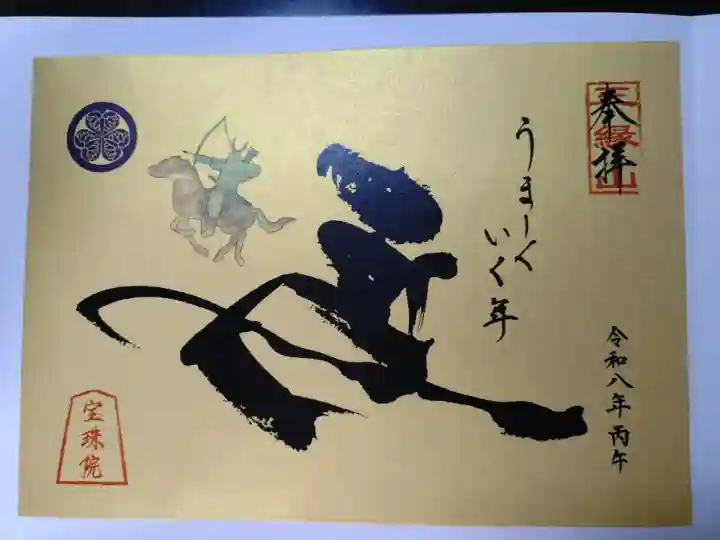 奉拝
三縁山
うまーく
いく年
馬
令和八年 丙午
宝珠院